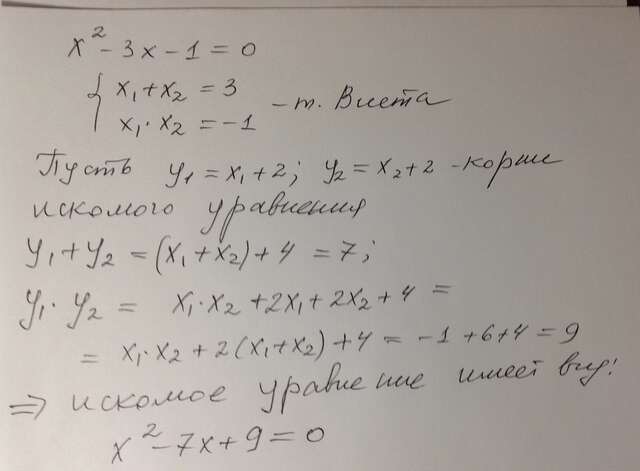 x² - 3x - 1 = 0
{ x₁ + x₂ = 3
x₁ · x₂ = -1 - т. Виета
Пусть y₁ = x₁ + 2; y₂ = x₂ + 2 - корни
искомого уравнения
y₁ + y₂ = (x₁ + x₂) + 4 = 7;
y₁ · y₂ = x₁ · x₂ + 2x₁ + 2x₂ + 4 =
= x₁ · x₂ + 2(x₁ + x₂) + 4 = -1 + 6 + 4 = 9
⇒ искомое уравнение имеет вид:
x² - 7x + 9 = 0